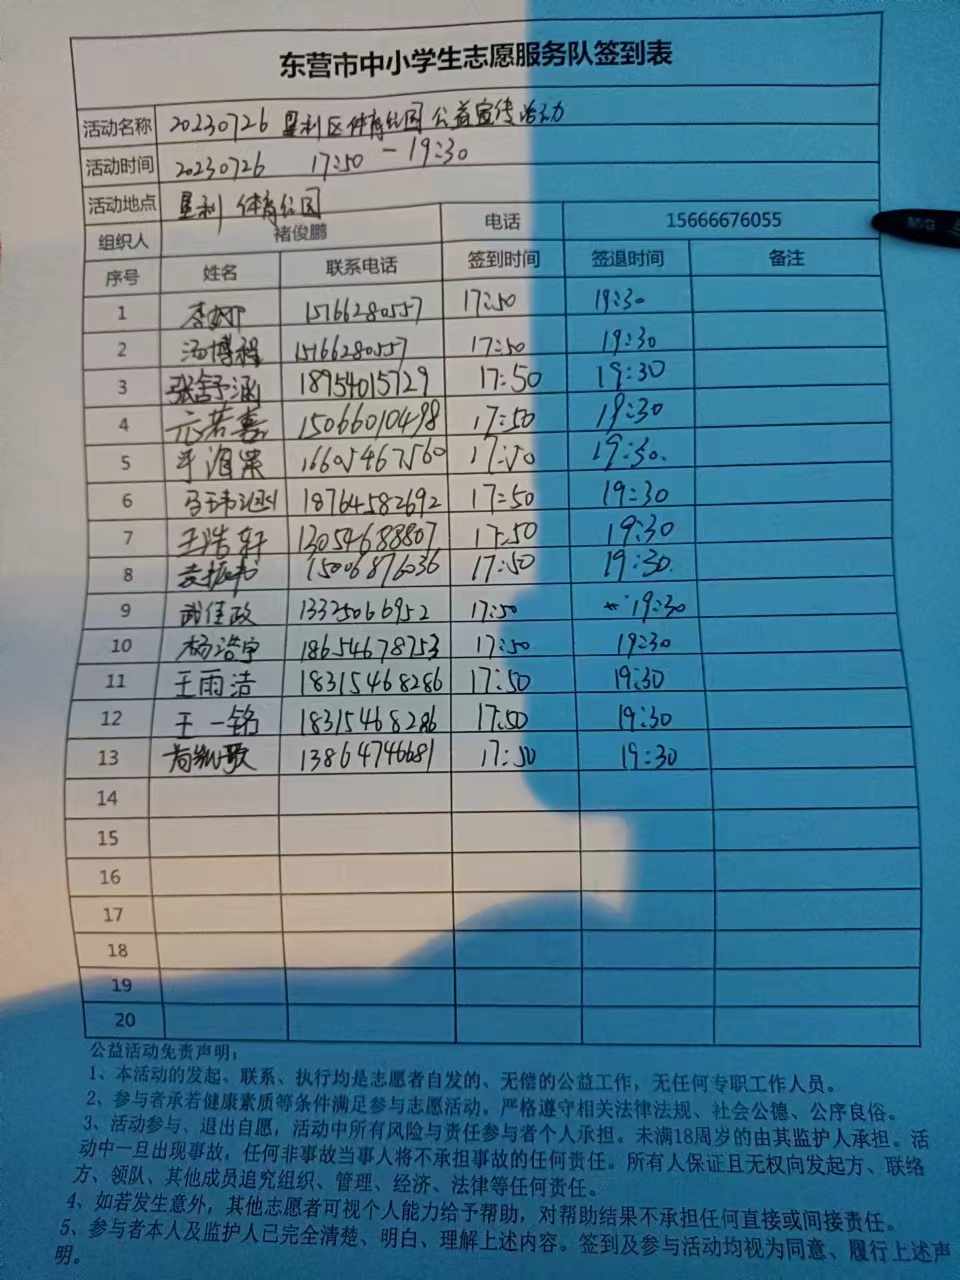 东营市中小学生志愿服务队签到表
活动名称 20230726 垦利区体育公园公益宣传活动
活动时间 20230726 17:50-19:30
活动地点 垦利体育公园
组织人 褚俊鹏 电话 15666676055
序号 姓名 联系电话 签到时间 签退时间 备注
1 李娜 15166280557 17:50 19:30
2 汤博程 15166280557 17:50 19:30
3 张舒涵 18954015729 17:50 19:30
4 亓若嘉 15066010498 17:50 19:30
5 16605467560 17:50 19:30.
6 18764582692 17:50 19:30
7 王浩轩 13054688807 17:50 19:30
8 15006876036 17:50 19:30.
9 武佳政 13325066952 17:50 19:30
10 杨浩宇 18654678753 17:50 19:30
11 王雨洁 18315468286 17:50 19:30
12 王一铭 18315468286 17:50 19:30
13 13864746681 17:50 19:30
14
15
16
17
18
19
20
公益活动免责声明：
1、本活动的发起、联系、执行均是志愿者自发的、无偿的公益工作，无任何专职工作人员。
2、参与者承若健康素质等条件满足参与志愿活动。严格遵守相关法律法规、社会公德、公序良俗。
3、活动参与、退出自愿，活动中所有风险与责任参与者个人承担。未满18周岁的由其监护人承担。活
动中一旦出现事故，任何非事故当事人将不承担事故的任何责任。所有人保证且无权向发起方、联络
方、领队、其他成员追究组织、管理、经济、法律等任何责任。
4、如若发生意外，其他志愿者可视个人能力给予帮助，对帮助结果不承担任何直接或间接责任。
5、参与者本人及监护人已完全清楚、明白、理解上述内容。签到及参与活动均视为同意、履行上述声
明。